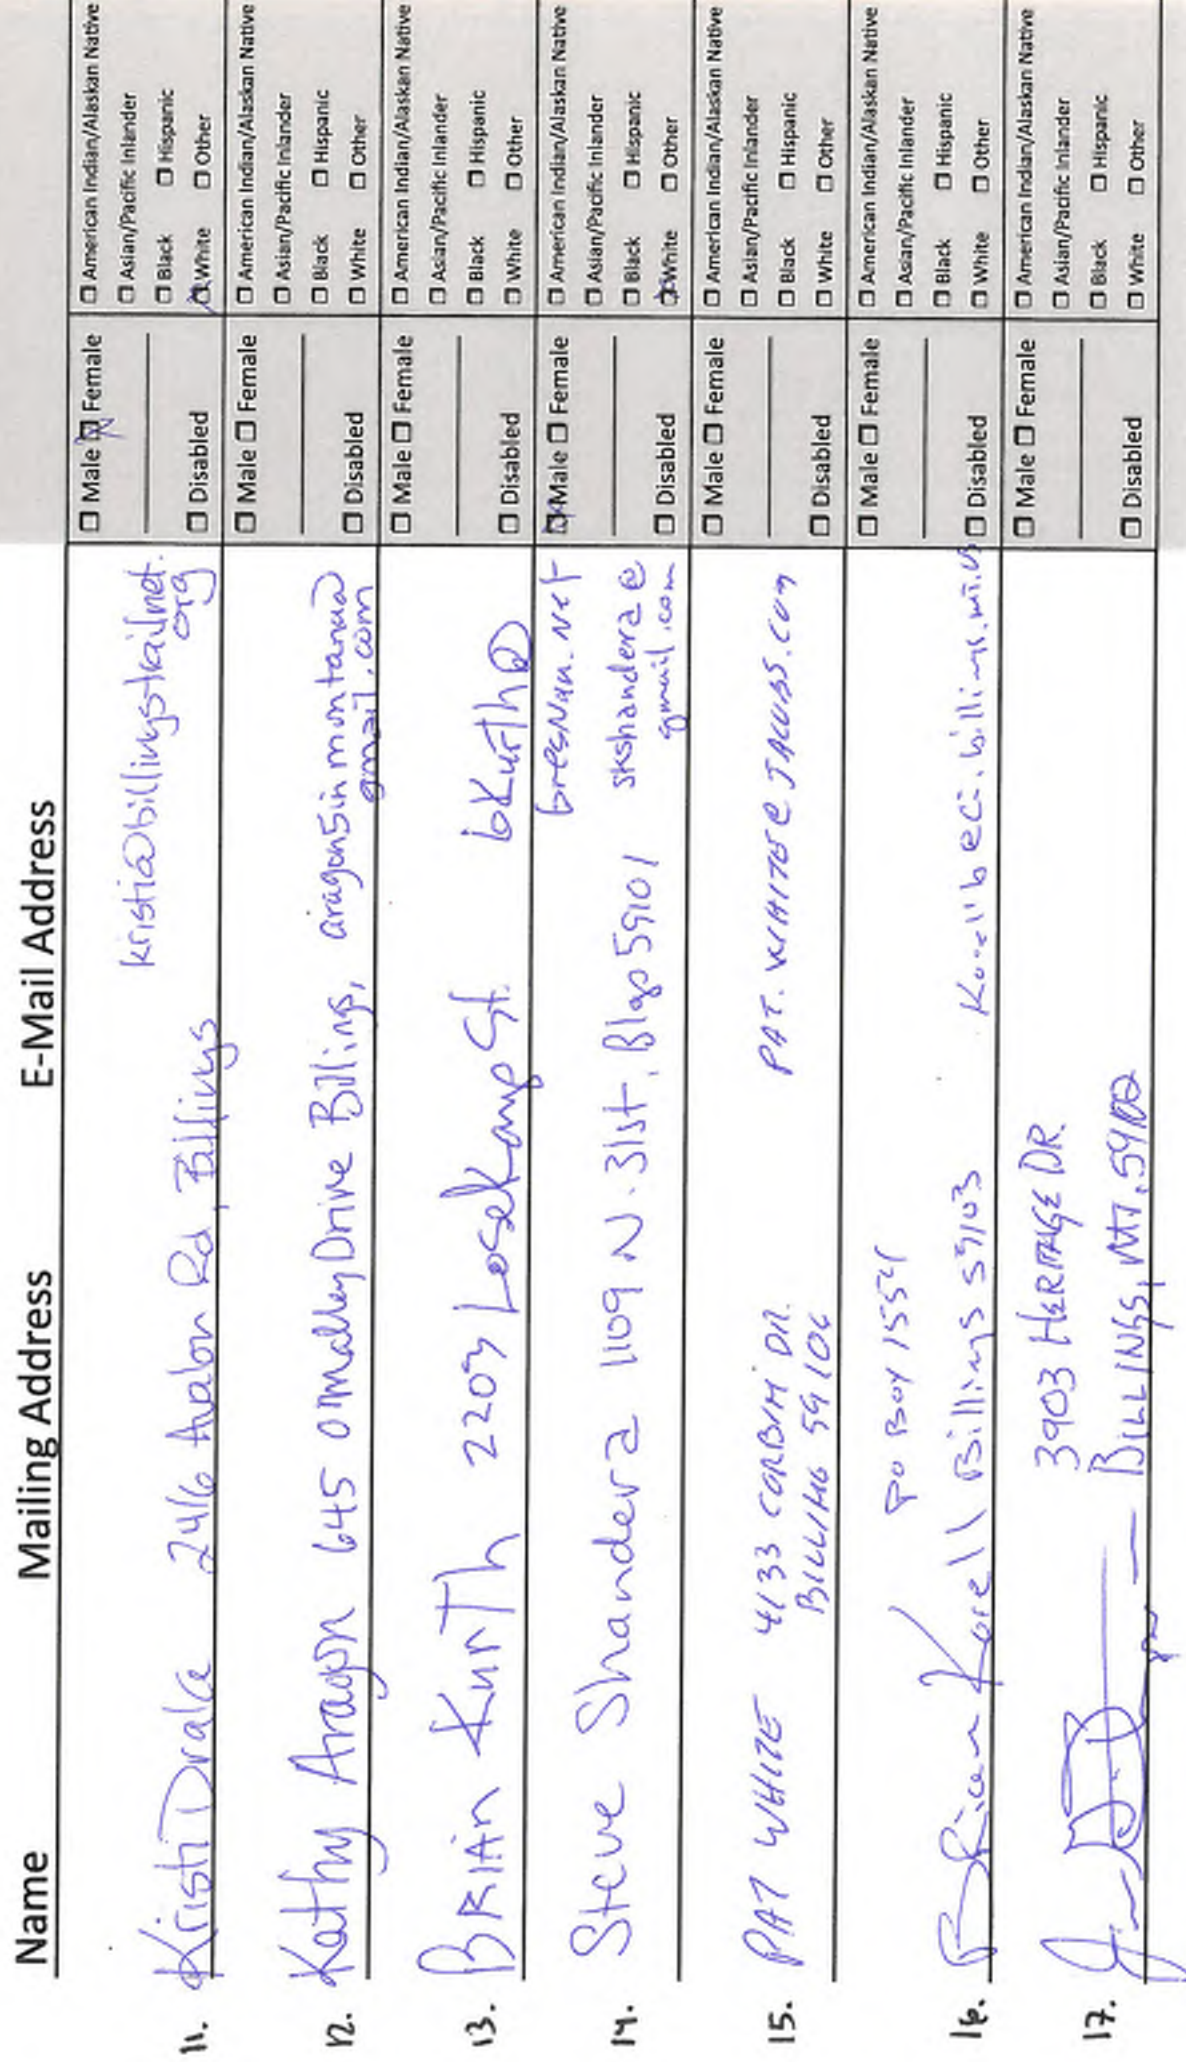 Name Mailing Address E-Mail Address
11. Kristi Drake 2416 Avalon Rd, Billings kristi@billingstrailnet.
org
☐ Male ☒ Female
☐ Disabled
☐ American Indian/Alaskan Native
☐ Asian/Pacific Inlander
☐ Black ☐ Hispanic
☒ White ☐ Other
12. Kathy Aragon 645 Omalley Drive Billings, aragonsinmontana@
gmail.com
☐ Male ☐ Female
☐ Disabled
☐ American Indian/Alaskan Native
☐ Asian/Pacific Inlander
☐ Black ☐ Hispanic
☐ White ☐ Other
13. BRIAN KurTh 2203 Losekamp St. bKurTh@
bresnan.net
☐ Male ☐ Female
☐ Disabled
☐ American Indian/Alaskan Native
☐ Asian/Pacific Inlander
☐ Black ☐ Hispanic
☐ White ☐ Other
14. Steve Shandera 1109 N. 31st, Blgs 59101 skshandera@
gmail.com
☒ Male ☐ Female
☐ Disabled
☐ American Indian/Alaskan Native
☐ Asian/Pacific Inlander
☐ Black ☐ Hispanic
☒ White ☐ Other
15. PAT WHITE 4133 CORBIN DR. PAT.WHITE@JACOBS.COM
BILLING 59106
☐ Male ☐ Female
☐ Disabled
☐ American Indian/Alaskan Native
☐ Asian/Pacific Inlander
☐ Black ☐ Hispanic
☐ White ☐ Other
PO Box 1554
16. Brian Korell Billings 59103 Korellb@ci.billings.mt.us
☐ Male ☐ Female
☐ Disabled
☐ American Indian/Alaskan Native
☐ Asian/Pacific Inlander
☐ Black ☐ Hispanic
☐ White ☐ Other
3903 HERITAGE DR.
17. BILLINGS, MT. 59102
☐ Male ☐ Female
☐ Disabled
☐ American Indian/Alaskan Native
☐ Asian/Pacific Inlander
☐ Black ☐ Hispanic
☐ White ☐ Other